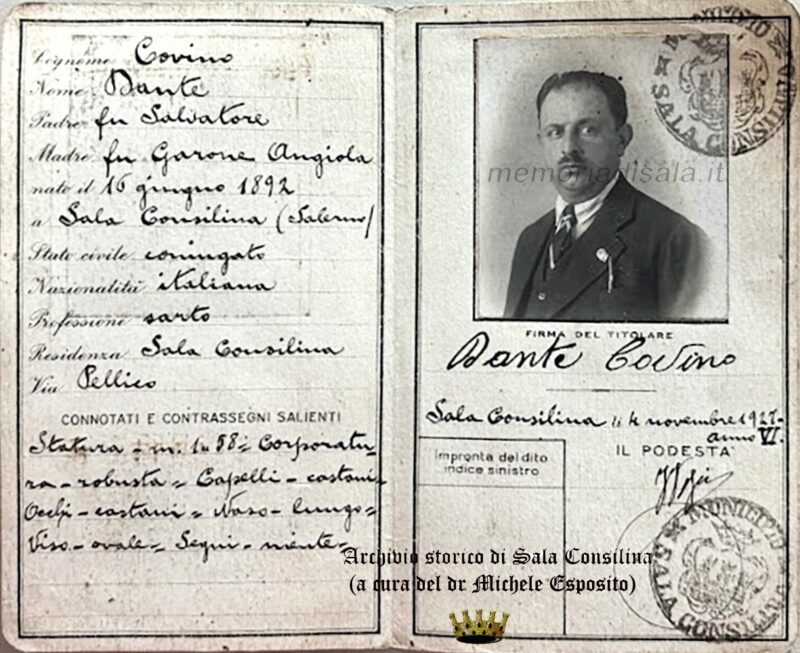 Cognome Covino
Nome Dante
Padre fu Salvatore
Madre fu Garone Angiola
nato il 16 giugno 1892
a Sala Consilina (Salerno)
Stato civile coniugato
Nazionalità italiana
Professione sarto
Residenza Sala Consilina
Via Pellico
CONNOTATI E CONTRASSEGNI SALIENTI
Statura - m. 1.58 = Corporatu-
ra - robusta = Capelli - castani =
Occhi - castani = Naso - lungo =
Viso - ovale = Segni - niente -
MUNICIPIO
SALA CONSILINA
memoriadisala.it
FIRMA DEL TITOLARE
Dante Covino
Sala Consilina li 4 novembre 1927.
anno VI.
Impronta del dito
indice sinistro
IL PODESTA'
MUNICIPIO
SALA CONSILINA
Archivio storico di Sala Consilina
(a cura del dr Michele Esposito)